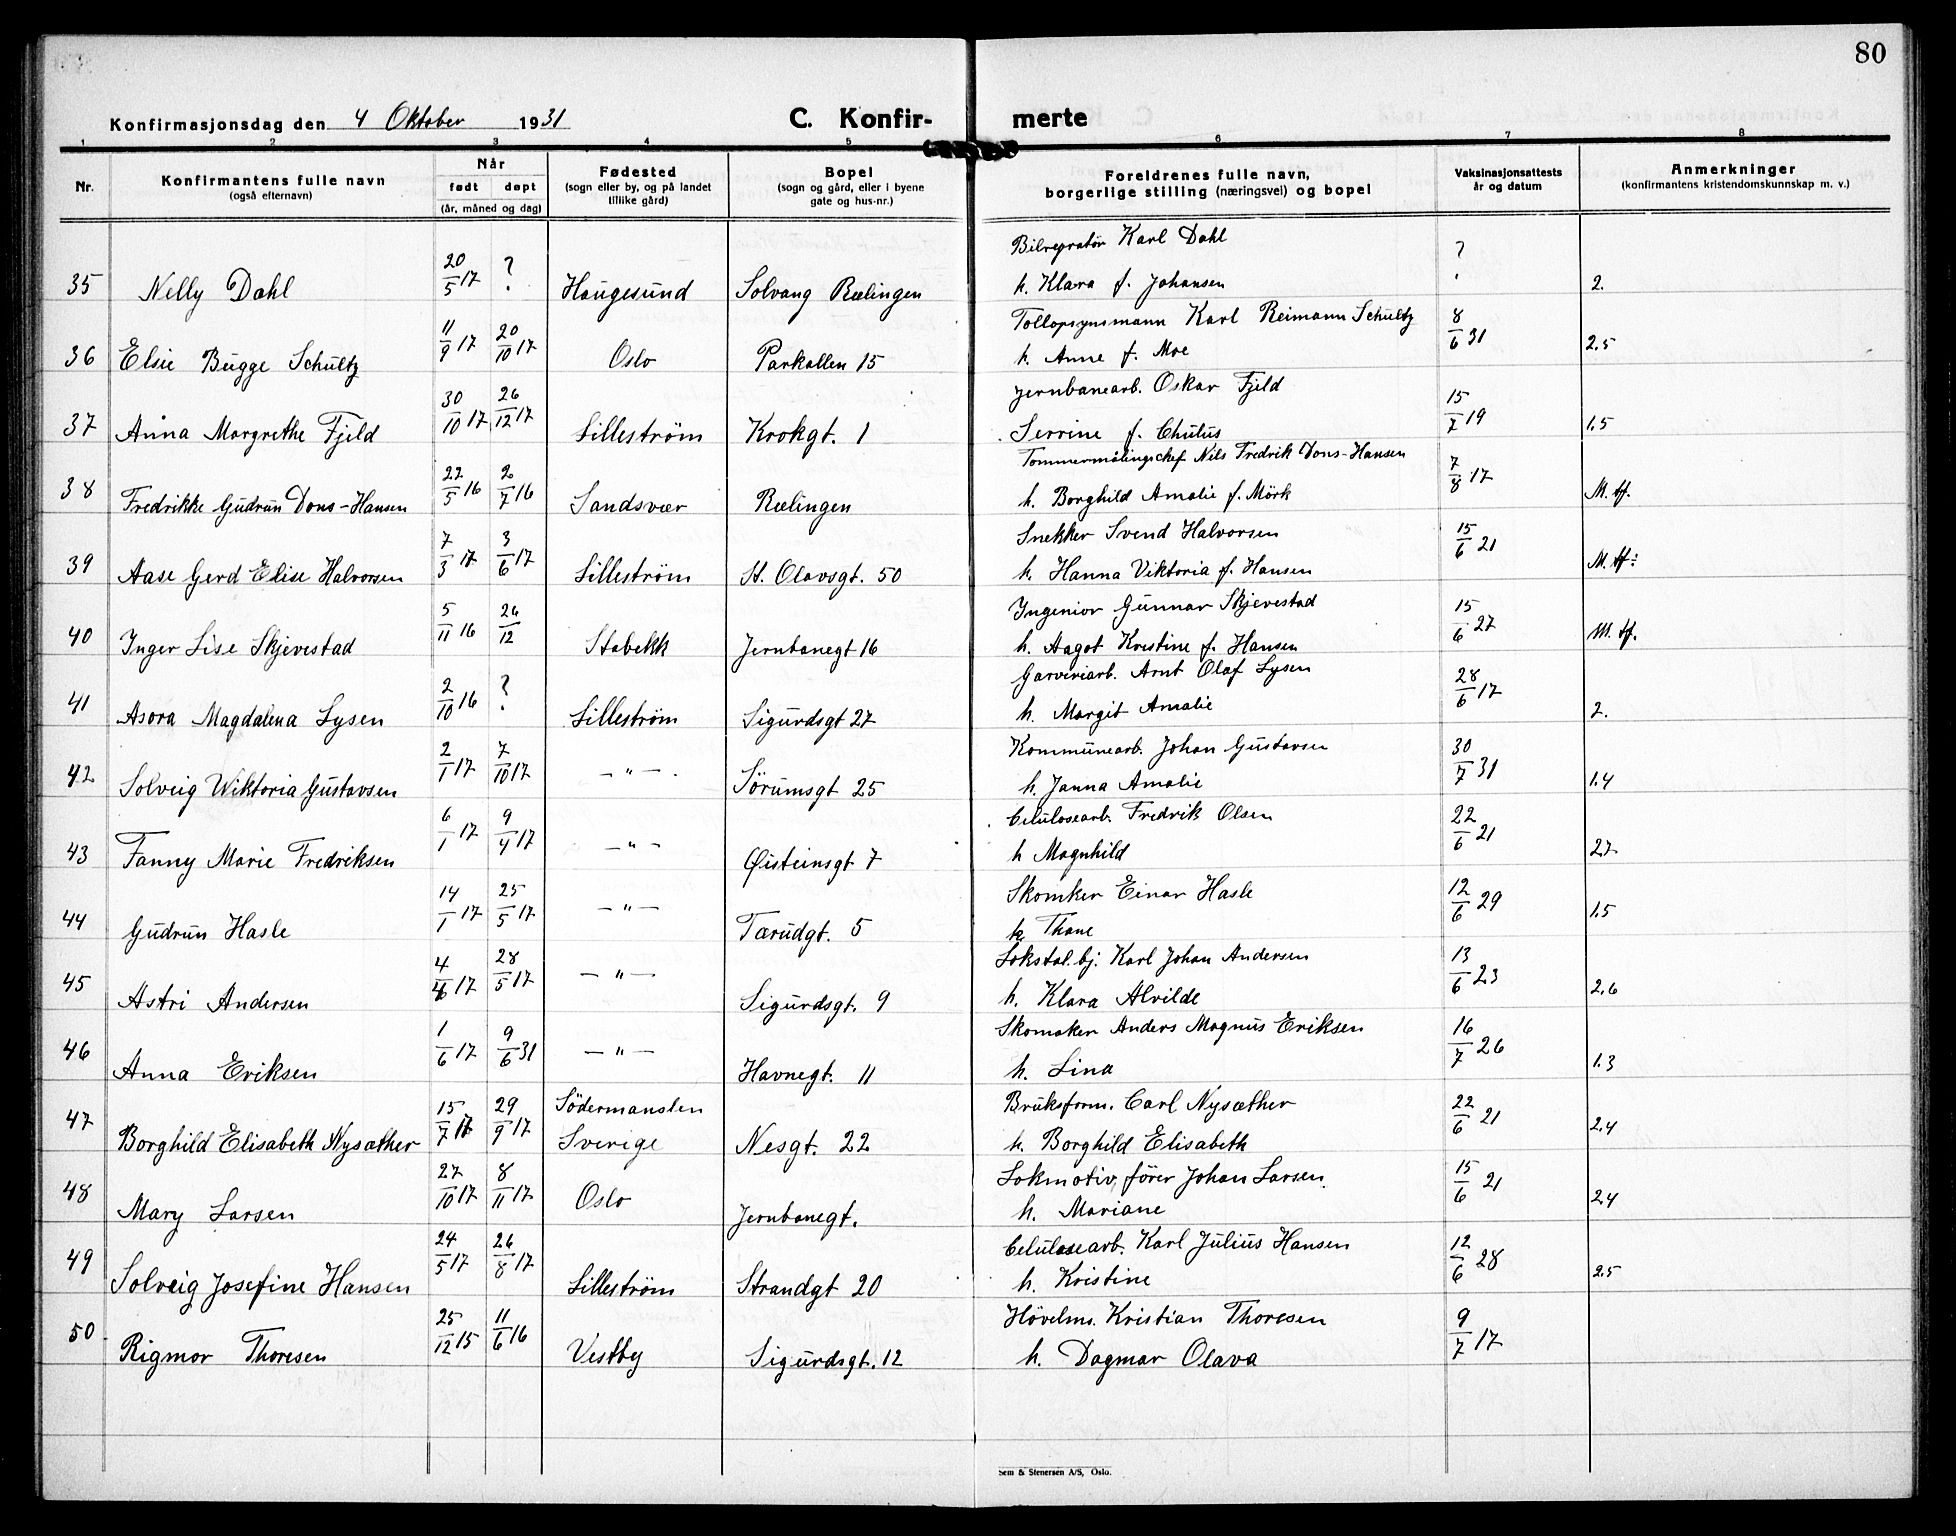 80
Konfirmasjonsdag den 4 Oktober 1931 C. Konfir- merte
1 2 3 4 5 6 7 8
Nr. Konfirmantens fulle navn (også efternavn) Når født døpt (år, måned og dag) Fødested (sogn eller by, og på landet tillike gård) Bopel (sogn og gård, eller i byene gate og hus-nr.) Foreldrenes fulle navn, borgerlige stilling (næringsvei) og bopel Vaksinasjonsattests år og datum Anmerkninger (konfirmantens kristendomskunnskap m. v.)
35 Nelly Dahl 20/5 17 ? Haugesund Solvang Rælingen Bilrepratör Karl Dahl ?
h. Klara f. Johansen 2.
36 Elsie Bugge Schultz 11/9 17 20/10 17 Oslo Parkallen 15 Tollopsynsmann Karl Reimann Schultz 8/6 31
h. Anne f. Moe 2.5
37 Anna Margrethe Fjeld 30/10 17 26/12 17 Lilleström Krokgt. 1 Jernbanearb. Oskar Fjeld 15/7 19
Serrine f. Chulus 1.5
38 Fredrikke Gudrun Dons-Hansen 22/5 16 2/7 16 Sandsvær Rælingen Tommermålingschef Nils Fredrik Dons-Hansen 7/8 17
h. Borghild Amalie f. Mörk M. tf.
39 Aase Gerd Elise Halvorsen 7/3 17 3/6 17 Lilleström St. Olavsgt. 50 Snekker Svend Halvorsen 15/6 21
h. Hanna Viktoria f. Hansen M. tf.
40 Inger Lise Skjevestad 5/11 16 26/12 Stabekk Jernbanegt 16 Ingeniør Gunnar Skjevestad 15/6 27
h. Aagot Kristine f. Hansen M. tf.
41 Asora Magdalena Lysen 2/10 16 ? Lilleström Sigurdsgt 27 Garveriarb. Arnt Olaf Lysen 28/6 17
h. Margit Amalie 2.
42 Solveig Wiktoria Gustavsen 2/1 17 7/10 17 - " - Sörumsgt 25 Kommunearb. Johan Gustavsen 30/7 31
h. Janna Amalie 1.4
43 Fanny Marie Fredriksen 6/1 17 9/4 17 - " - Øisteinsgt 7 Celulosearb. Fredrik Olsen 22/6 21
h Magnhild 2.7
44 Gudrun Hasle 14/1 17 25/5 17 - " - Tærudgt. 5 Skomker Einar Hasle 12/6 29
h Thane 1.5
45 Astri Andersen 4/6 17 28/5 17 - " - Sigurdsgt. 9 Lokstal. bj. Karl Johan Andersen 13/6 23
h. Klara Alvilde 2.6
46 Anna Eriksen 1/6 17 9/6 31 - " - Havnegt. 11 Skomaker Anders Magnus Eriksen 16/7 26
h. Lina 1.3
47 Borghild Elisabeth Nysæther 15/7 17 29/9 17 Södermanslen Sverige Nesgt. 22 Bruksform. Carl Nysæther 22/6 21
h. Borghild Elisabeth 2.4
48 Mary Larsen 27/10 17 8/11 17 Oslo Jernbanegt. Lokmotivförer Johan Larsen 15/6 21
h. Mariane 2.4
49 Solveig Josefine Hansen 24/5 17 26/8 17 Lilleström Strandgt 20 Celulosearb. Karl Julius Hansen 12/6 28
h. Kristine 2.5
50 Rigmor Thoresen 25/12 15 11/6 16 Vestby Sigurdsgt. 12 Hövelms. Kristian Thoresen 9/7 17
h. Dagmar Olava
Sem & Stenersen A/S, Oslo.